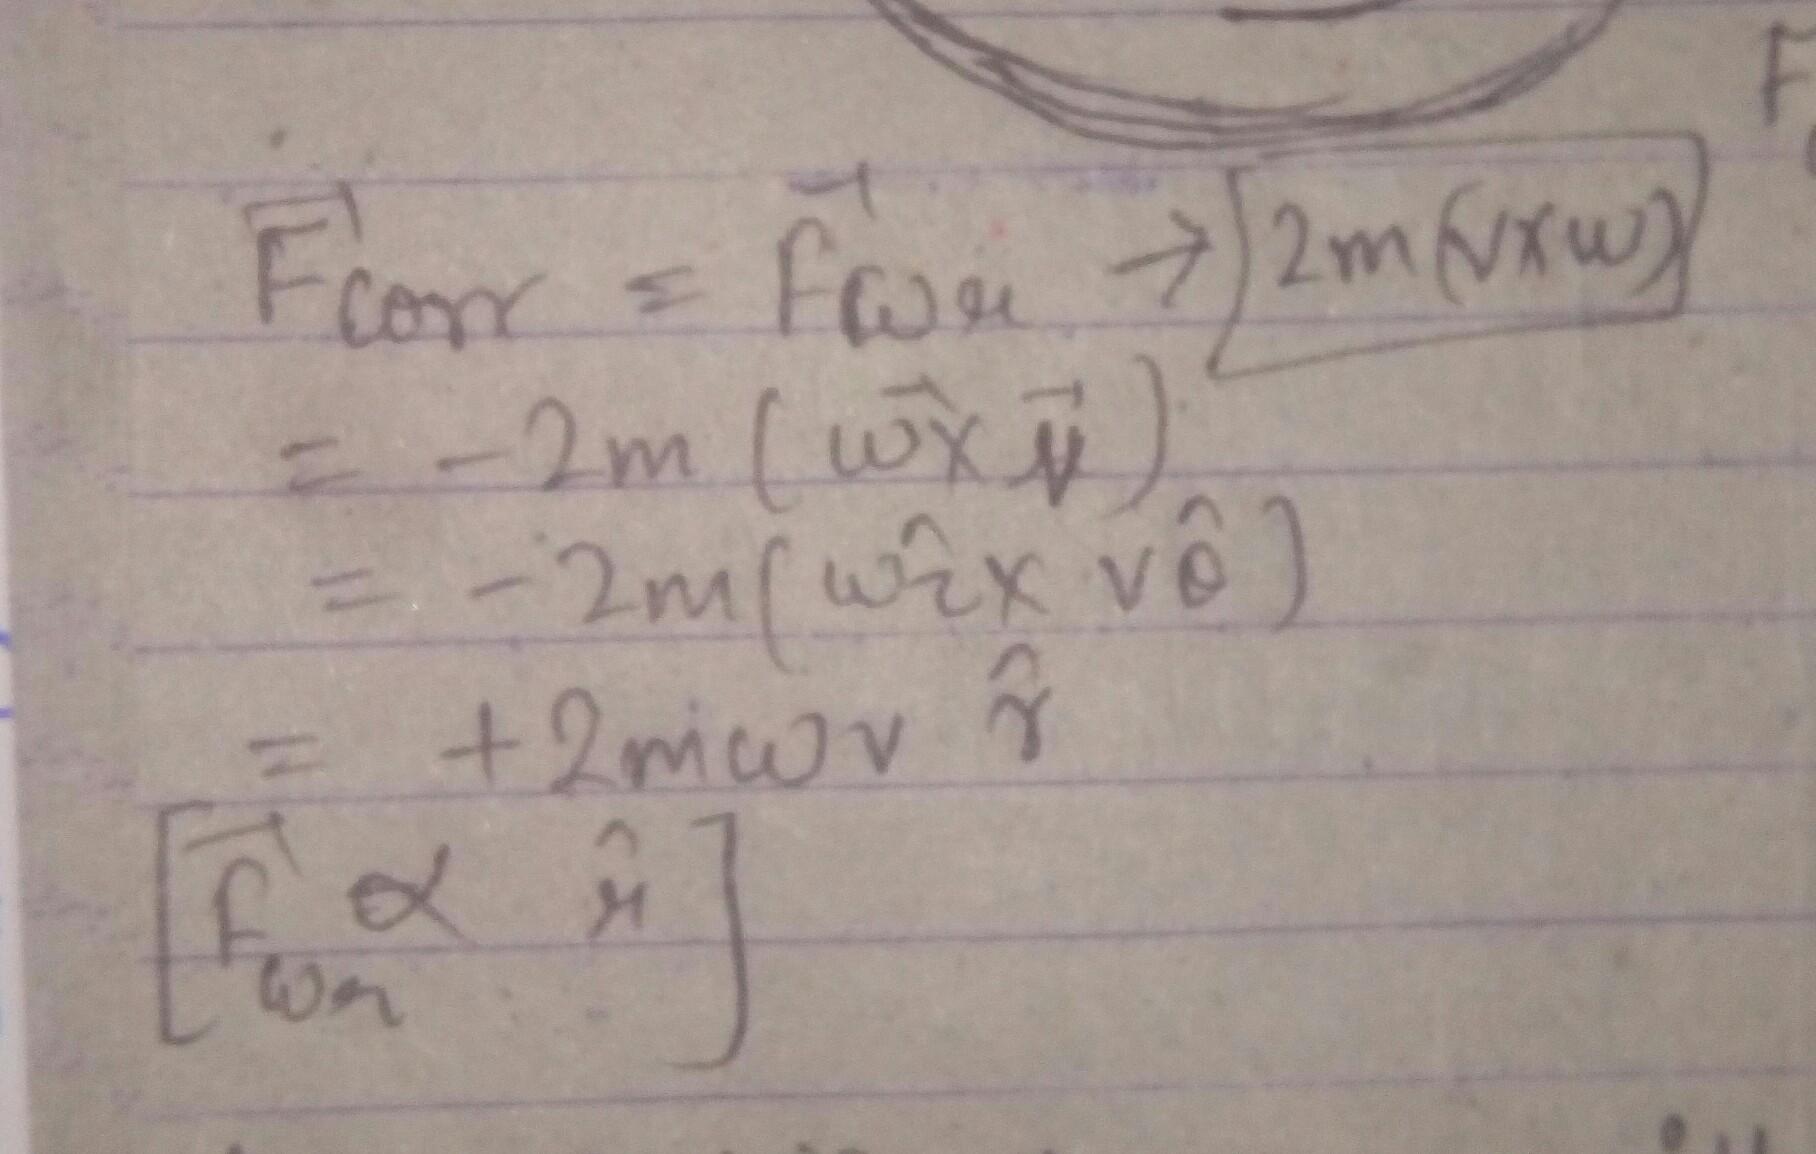 F⃗corr = F⃗cor → 2m(v×ω)
= -2m (ω⃗×v⃗)
= -2m(ωẑ× vθ̂)
= +2mωv r̂
[F⃗cor ∝ r̂]
F